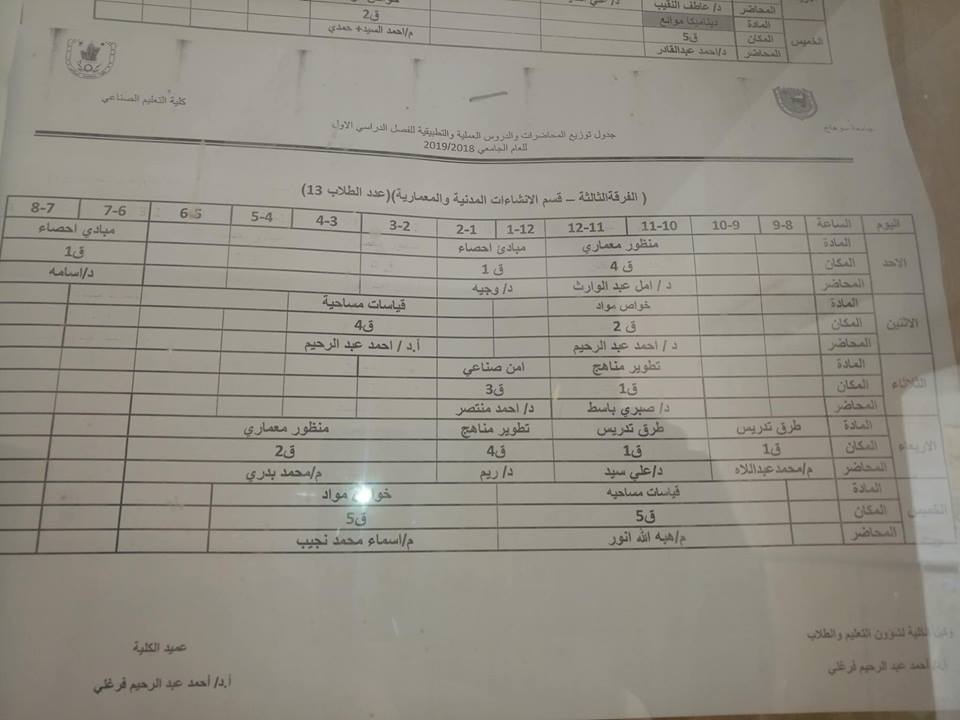 المحاضر د/ عاطف النقيب
الخميس المادة ديناميكا موائع
المكان ق5 ق2
المحاضر د/احمد عبدالقادر م/احمد السيد+ حمدي
جامعة سوهاج كلية التعليم الصناعي
جدول توزيع المحاضرات والدروس العملية والتطبيقية للفصل الدراسي الاول
للعام الجامعي 2019/2018
( الفرقةالثالثة – قسم الانشاءات المدنية والمعمارية)(عدد الطلاب 13)
اليوم الساعة 9-8 10-9 11-10 12-11 1-12 2-1 3-2 4-3 5-4 6-5 7-6 8-7
الاحد المادة منظور معماري مبادئ احصاء مبادي احصاء
المكان ق 4 ق 1 ق1
المحاضر د / امل عبد الوارث د/ وجيه د/اسامه
الاثنين المادة خواص مواد قياسات مساحية
المكان ق 2 ق4
المحاضر د / احمد عبد الرحيم أ.د / احمد عبد الرحيم
الثلاثاء المادة تطوير مناهج امن صناعي
المكان ق1 ق3
المحاضر د/ صبري باسط د/ احمد منتصر
الاربعاء المادة طرق تدريس طرق تدريس تطوير مناهج منظور معماري
المكان ق1 ق1 ق4 ق2
المحاضر م/محمدعبداللاه د/علي سيد د/ ريم م/محمد بدري
الخميس المادة قياسات مساحيه خواص مواد
المكان ق5 ق5
المحاضر م/هبه الله انور م/اسماء محمد نجيب
وكيل الكلية لشؤون التعليم والطلاب
عميد الكلية
أ.د/ أحمد عبد الرحيم فرغلي
أ.د/ أحمد عبد الرحيم فرغلي